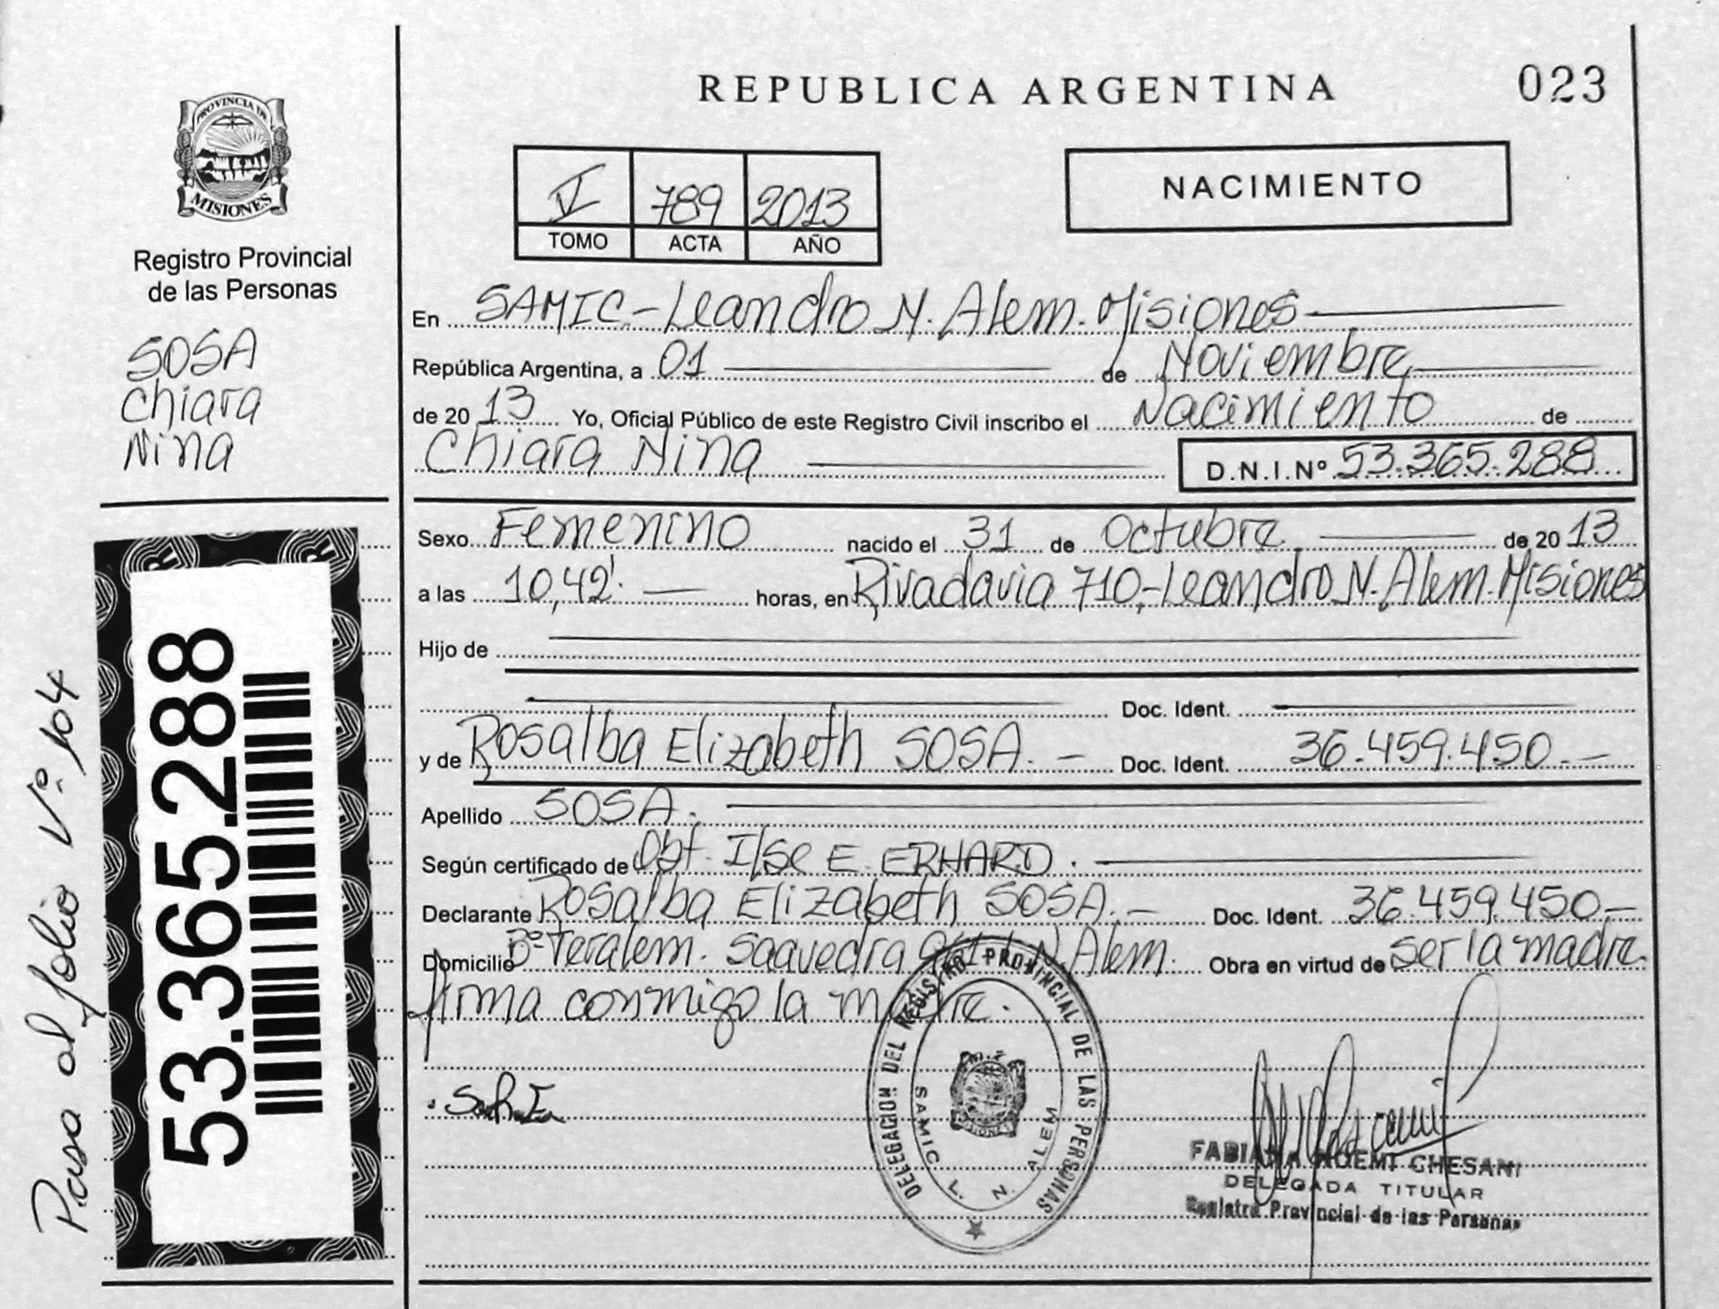 REPUBLICA ARGENTINA
023
PROVINCIA DE
MISIONES
Registro Provincial
de las Personas
SOSA
Chiara
Nina
V 789 2013
TOMO ACTA AÑO
NACIMIENTO
En SAMIC-Leandro N. Alem. Misiones
República Argentina, a 01 de Noviembre
de 2013 Yo, Oficial Público de este Registro Civil inscribo el Nacimiento de
Chiara Nina D.N.I.Nº 53.365.288
Sexo Femenino nacido el 31 de Octubre de 2013
a las 10,42'. horas, en Rivadavia 710,-Leandro N. Alem. Misiones
Hijo de
Doc. Ident.
y de Rosalba Elizabeth SOSA. - Doc. Ident. 36.459.450.-
Apellido SOSA.
Según certificado de Obt. Ilse E. ERHARD.
Declarante Rosalba Elizabeth SOSA. - Doc. Ident. 36.459.450,-
Domicilio Bº Teralem. Saavedra N. Alem. Obra en virtud de ser la madre.
firma conmigo la madre.
53.365.288
Pasa al folio Nº 104
DELEGACION DEL REGISTRO PROVINCIAL DE LAS PERSONAS
SAMIC L. N. ALEM
MISIONES
FABIANA NOEMI CHESANI
DELEGADA TITULAR
Registro Provincial de las Personas